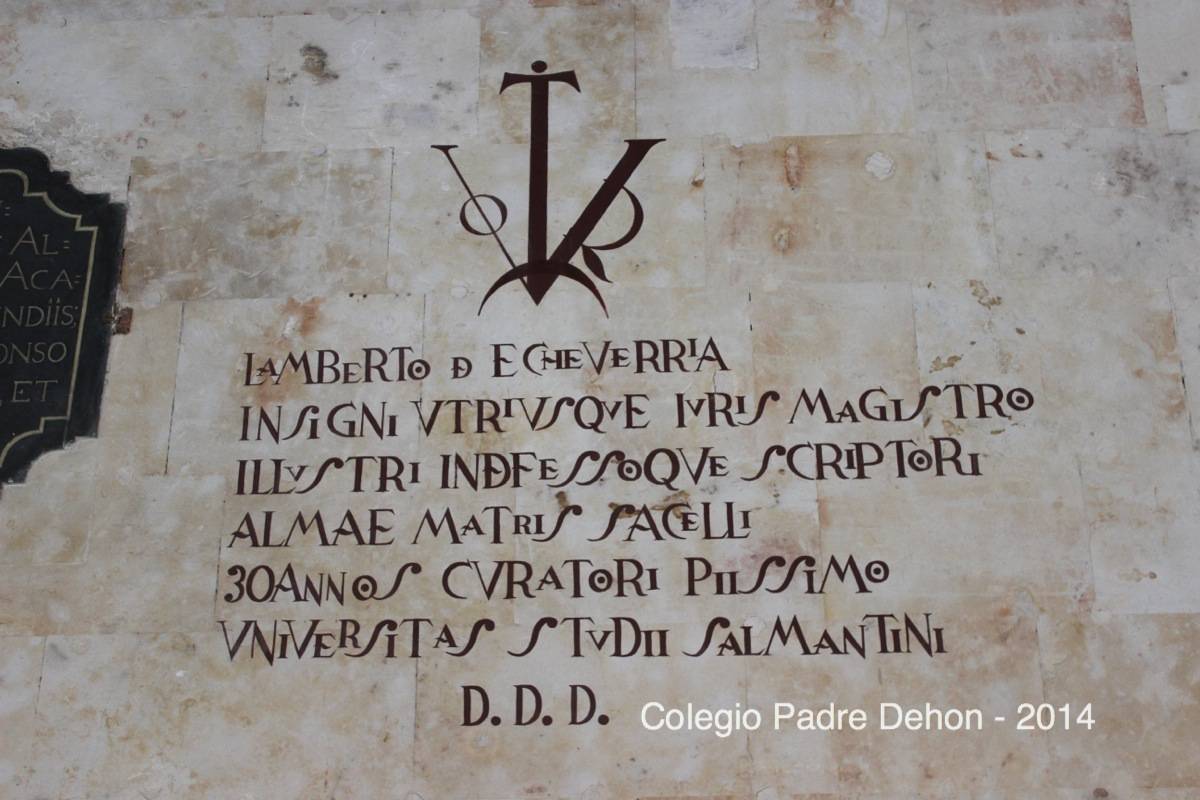 AL=
ACA=
NDIIS;
ONSO
, ET
LAMBERTO D ECHEVERRIA
INSIGNI VTRIVSQVE IVRIS MAGISTRO
ILLVSTRI INDEFESSOQVE SCRIPTORI
ALMAE MATRIS SACELLI
30 ANNOS CVRATORI PIISSIMO
VNIVERSITAS STVDII SALMANTINI
D. D. D.
Colegio Padre Dehon - 2014